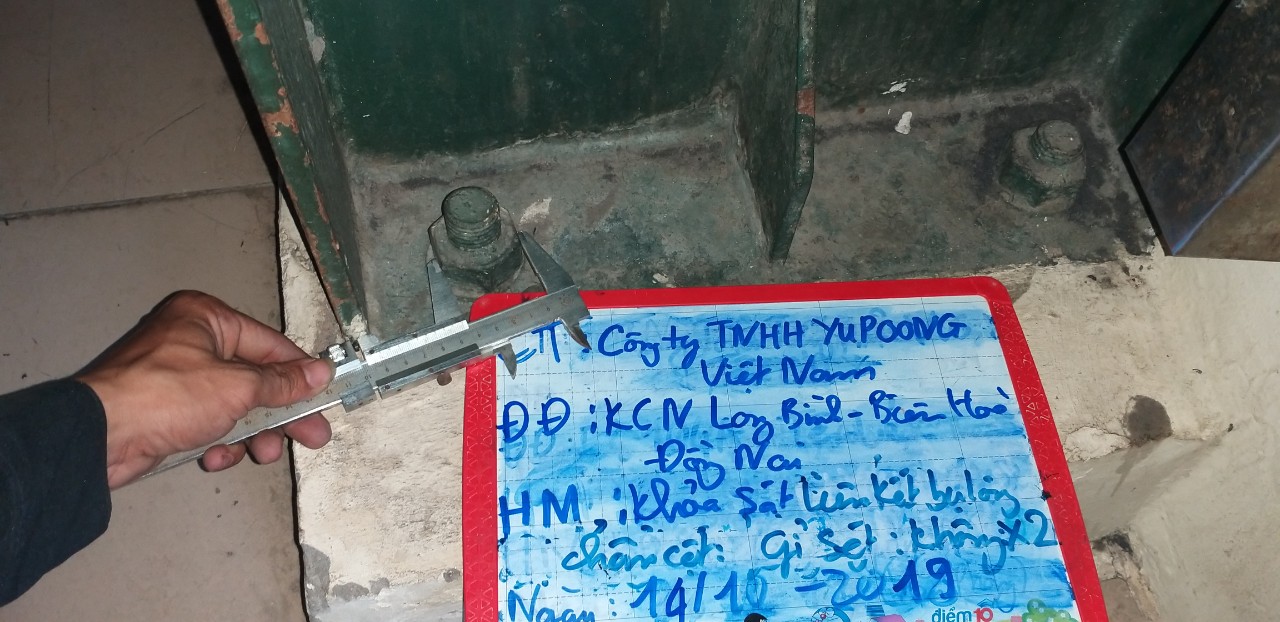 CT : Công ty TNHH YUPOONG
Việt Nam
ĐĐ : KCN Long Bình - Biên Hoà
- Đồng Nai
HM : Khảo sát liên kết bulông
chân cột : Gỉ Sét : không X2
Ngày : 14/10 - 2019
điểm 10